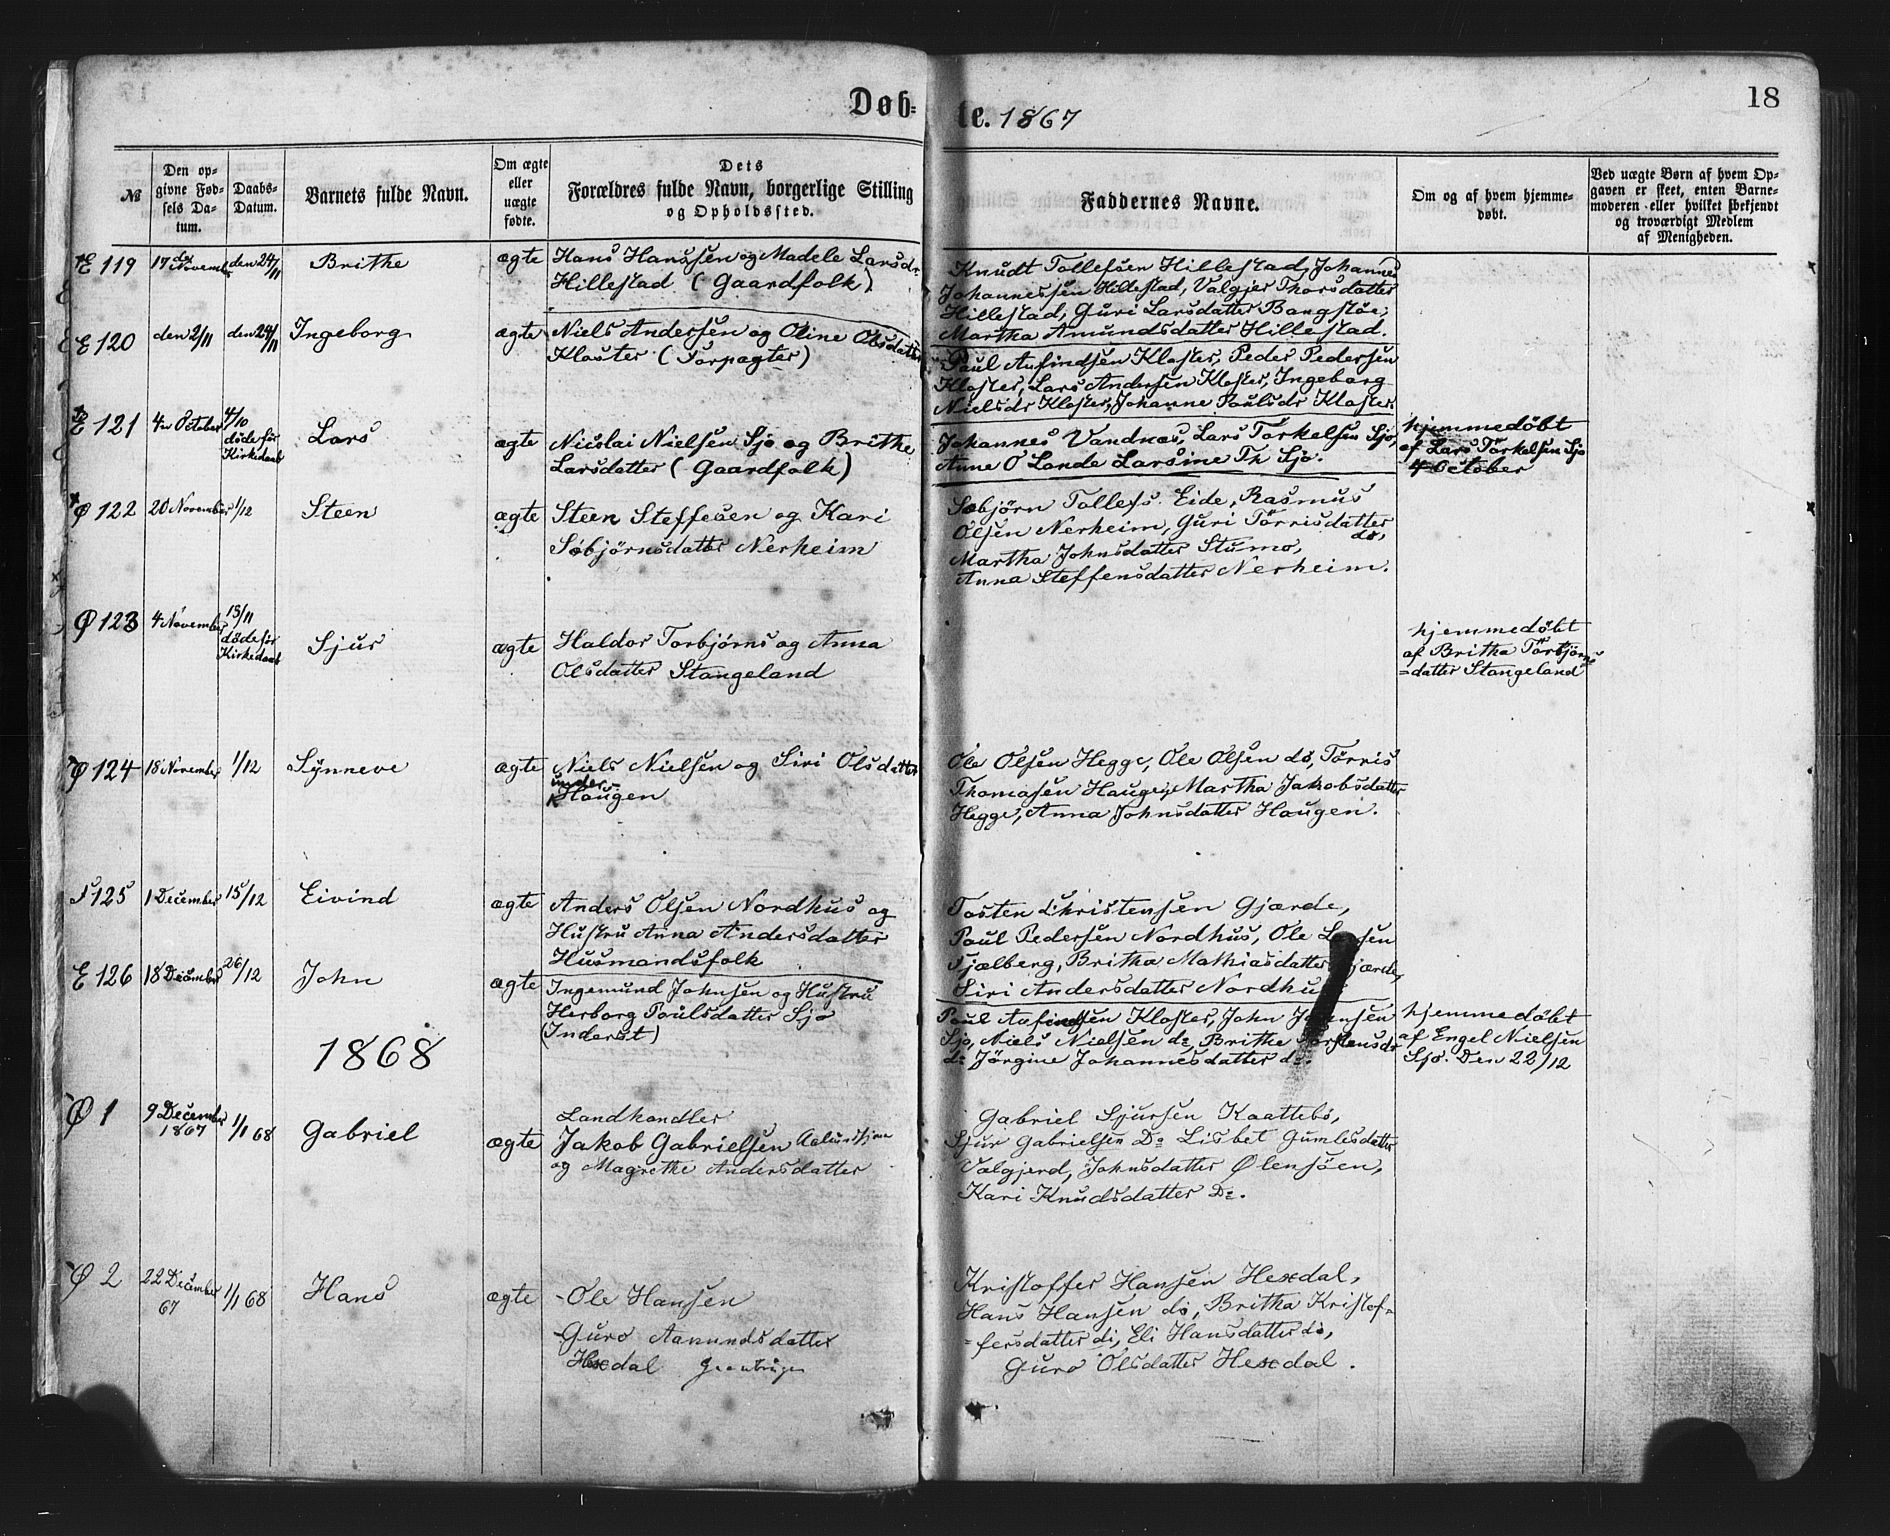 Døb-
te. 1867
18
№
Den op-
givne Fød-
sels Da-
tum.
Daabs-
Datum.
Barnets fulde Navn.
Om ægte
eller
uægte
fødte.
Dets
Forældres fulde Navn, borgerlige Stilling
og Opholdssted.
Faddernes Navne.
Om og af hvem hjemme-
døbt.
Ved uægte Børn af hvem Op-
gaven er skeet, enten Barne-
moderen eller hvilket bekjendt
og troværdigt Medlem
af Menigheden.
E 119
17de
November
den 24/11
Brithe
ægte
Hans Hanssen og Madele Larsdr
Hillestad (Gaardfolk)
Knudt Tollefsen Hillestad, Johannes
Johannessen Hillestad, Valgjer Thorsdatter
Hillestad, Guri Larsdatter Bangstøe,
Martha Amundsdatter Hillestad.
E 120
den 2/11
den 24/11
Ingeborg
ægte
Niels Andersen og Oline Olsdatter
Kloster (Forpagter)
Paul Aafindsen Kloster, Peder Pedersen
Kloster, Lars Andersen Kloster, Ingeborg
Nielsdr Kloster, Johanne Poulsdr Kloster.
E 121
4de October
4/10
døde før
Kirkedaab
Lars
ægte
Nicolai Nielsen Sjo og Brithe
Larsdatter (Gaardfolk)
Johannes Vandnæs, Lars Torkelsen Sjo,
Anne O Lande Larsine Th Sjo.
hjemmedöbt
af Lars Törkelsen Sjo
4 October
Ø 122
20 November
1/12
Steen
ægte
Steen Steffesen og Kari
Söbjörnsdatter Nerheim
Søbjörn Tollefs. Eide, Rasmus
Olsen Nerheim, Guri Törrisdatter
do,
Martha Johnsdatter Stumo,
Anna Steffensdatter Nerheim.
Ø 123
4 November
13/11
döde för
Kirkedaab
Sjur
ægte
Haldor Torbjørns og Anna
Olsdatter Stangeland
hjemmedöbt
af Britha Törbjörns
=datter Stangeland
Ø 124
18 November
1/12
Synneve
ægte
Niels Nielsen og Siri Olsdatter
under
Haugen
Ole Olsen Hegge, Ole Olsen do, Tørris
Thomasen Haugen, Martha Jakobsdatter
Hegge, Anna Johnsdatter Haugen.
S 125
1 December
15/12
Eivind
ægte
Anders Olsen Nordhus og
Hustru Anna Andersdatter
Husmandsfolk
Tosten Christensen Gjærde,
Paul Pedersen Nordhus, Ole Larsen
Fjælberg, Britha Mathiasdatter Gjærde,
Siri Andersdatter Nordhus
E 126
18 December
26/12
John
ægte
Ingemund Johnsen og Hustru
Herborg Poulsdatter Sjo
(Inderst)
Poul Aafindsen Kloster, John Johnsen
Sjo, Niels Nielsen do, Brithe Torstensdr
do Jörgine Johannesdatter do.
hjemmedöbt
af Engel Nielsen
Sjo. Den 22/12
1868
Ø 1
9 December
1867
1/1 68
Gabriel
ægte
Landhandler
Jakob Gabrielsen
og Magrethe Andersdatter
Gabriel Sjursen Kaattebö,
Sjur Gabrielsen Do Lisbet Gumlesdatter
Valgjerd, Johnsdatter Ølensöen,
Kari Knudsdatter Do.
Ø 2
22 December
67
1/1 68
Hans
ægte
Ole Hansen
Guro Aamundsdatter
Hexdal
Kristoffer Hansen Hexdal,
Hans Hansen do, Britha Kristof-
=fersdatter do, Eli Hansdatter do,
Guro Olsdatter Hexdal.